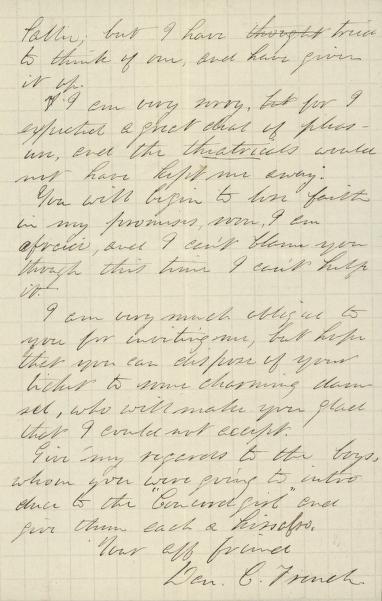 latter; but I have thought tried
to think of one, and have given
it up.
I am very sorry, but for I
expected a great deal of pleas-
ure, and the theatricals would
not have kept me away.
You will begin to lose faith
in my promises, soon, I am
afraid, and I can't blame you
though this time I can't help
it.
I am very much obliged to
you for inviting me, but hope
that you can dispose of your
ticket to some charming dam-
sel, who will make you glad
that I could not accept.
Give my regards to the boys,
whom you were going to intro
duce to the "Concord girl" and
give them each a
Your aff friend
Dan. C. French.